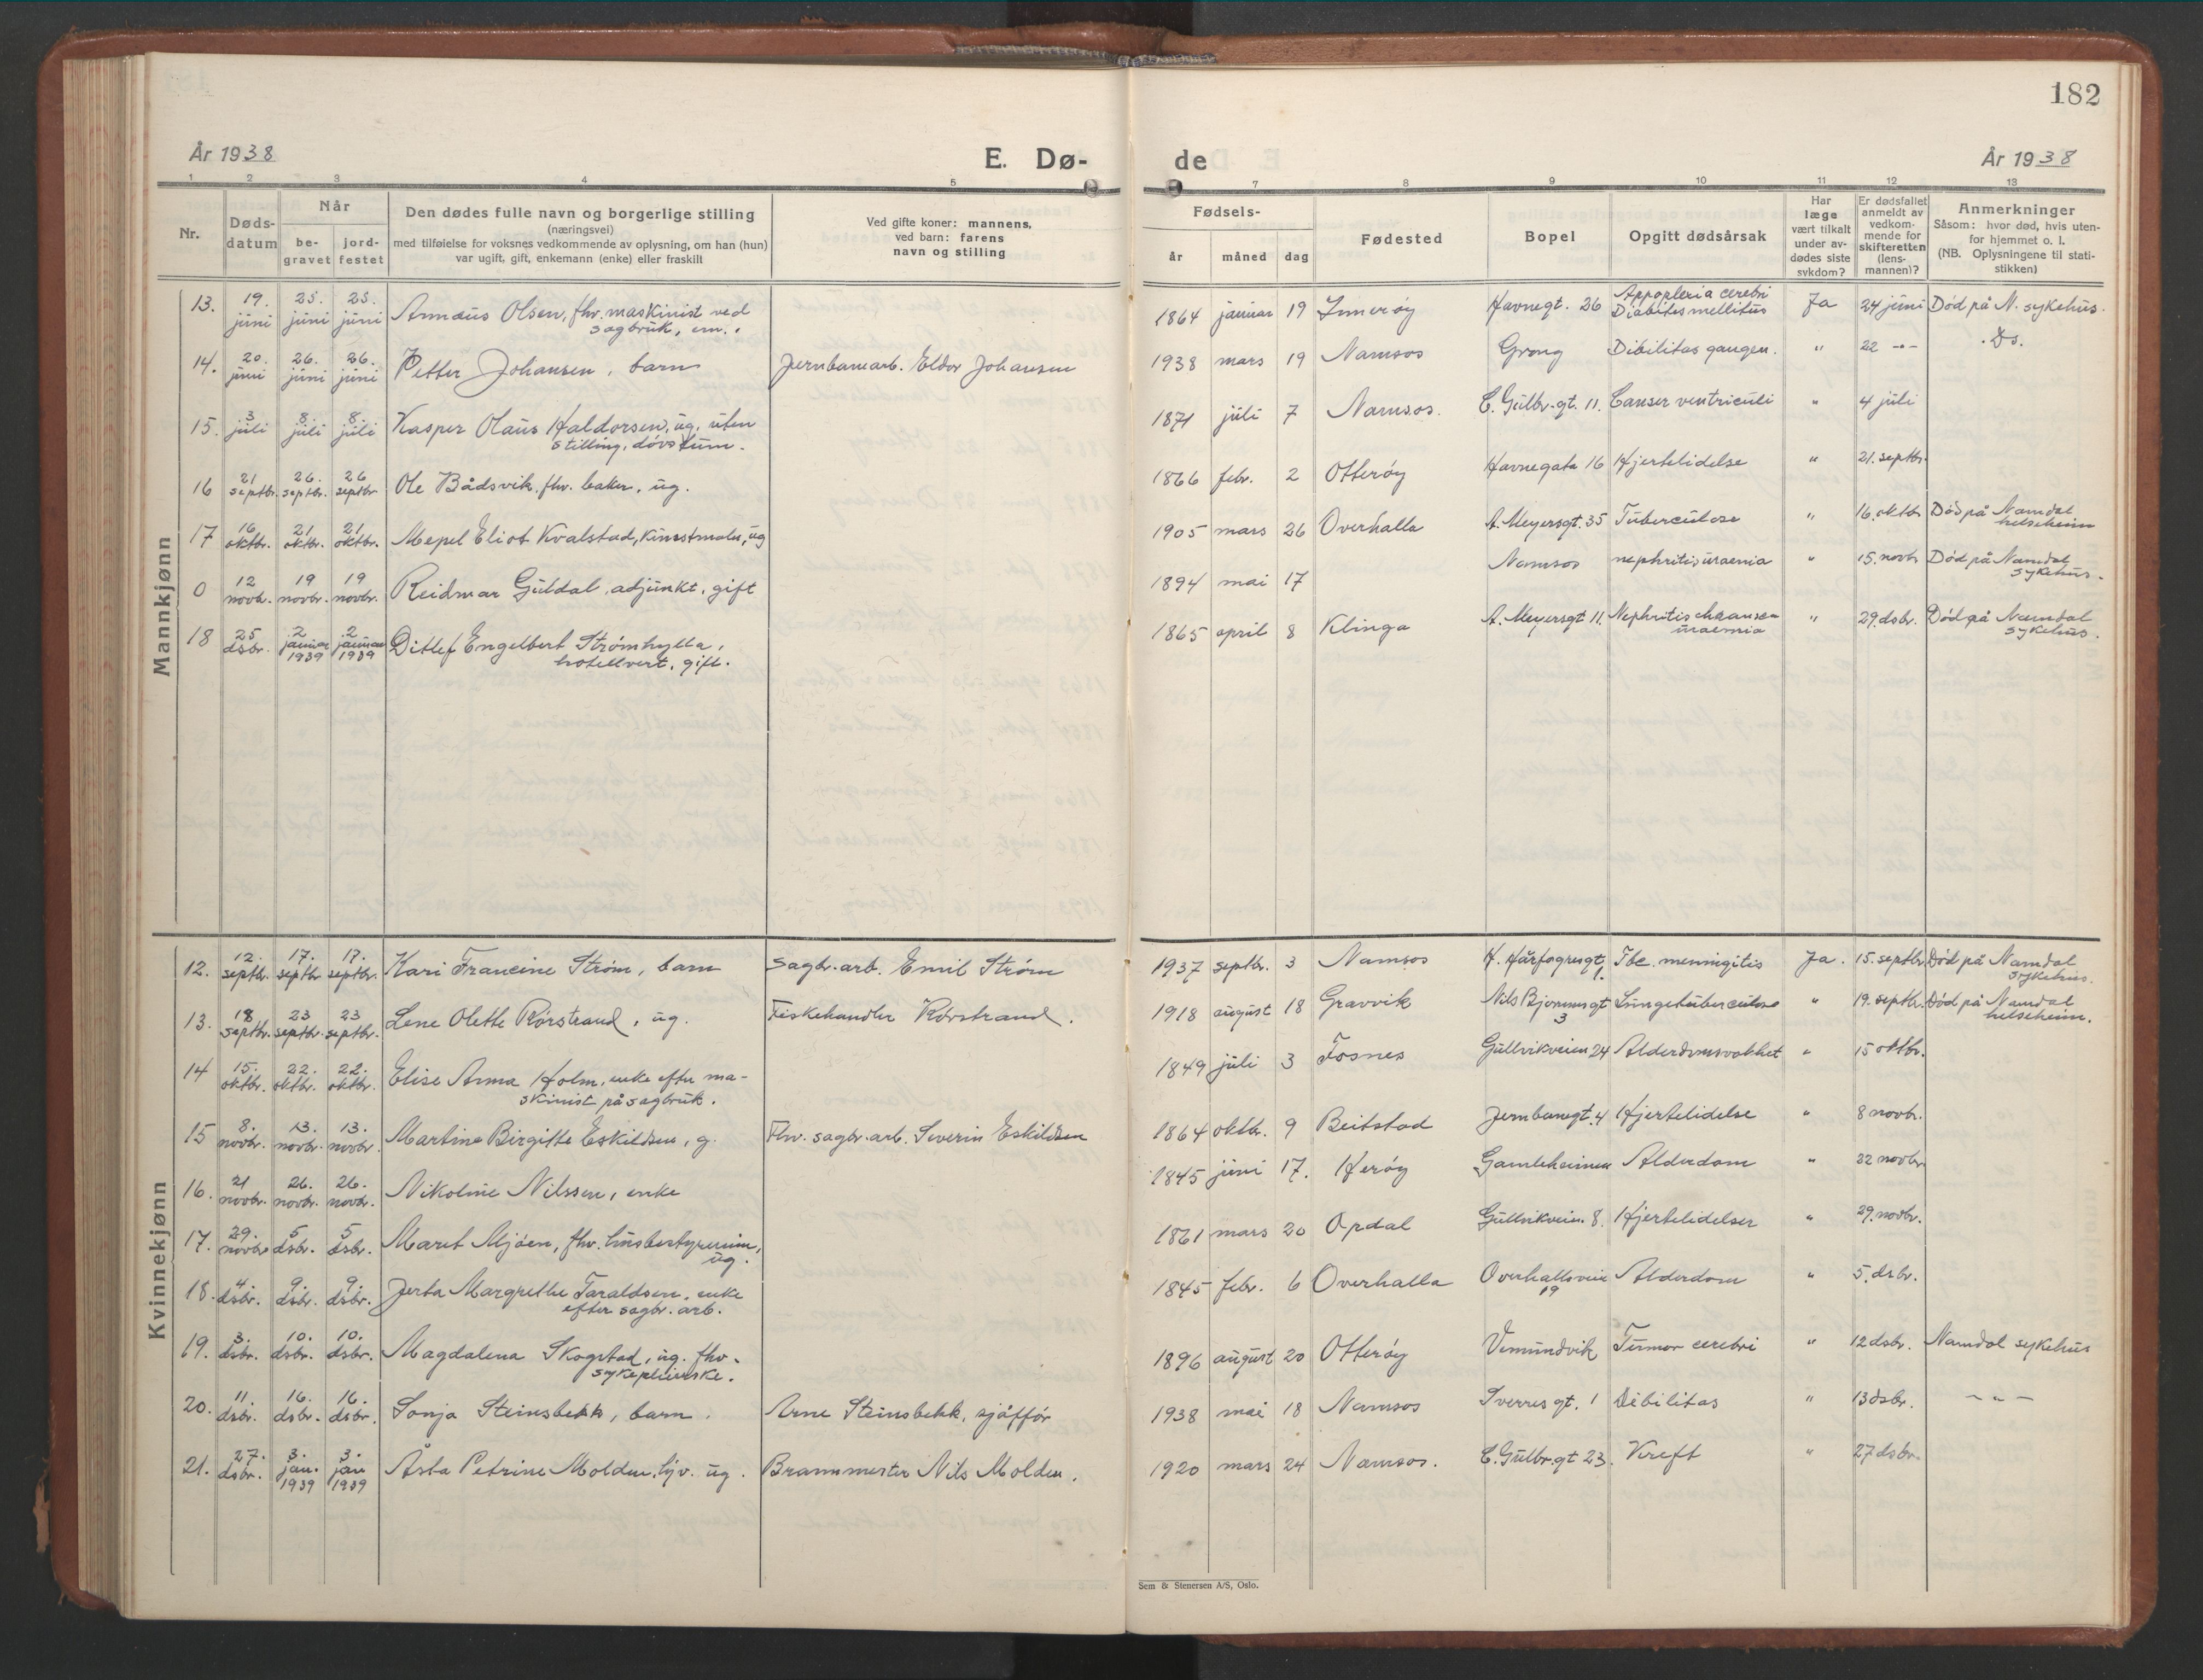 182
År 1938
E. Dø-
de
År 1938
1 2 3 4 5 7 8 9 10 11 12 13
Nr.
Døds-
datum
Når
be-
gravet
jord-
festet
Den dødes fulle navn og borgerlige stilling
(næringsvei)
med tilføielse for voksnes vedkommende av oplysning, om han (hun)
var ugift, gift, enkemann (enke) eller fraskilt
Ved gifte koner: mannens,
ved barn: farens
navn og stilling
Fødsels-
år måned dag
Fødested
Bopel
Opgitt dødsårsak
Har
læge
vært tilkalt
under av-
dødes siste
sykdom?
Er dødsfallet
anmeldt av
vedkom-
mende for
skifteretten
(lens-
mannen)?
Anmerkninger
Såsom: hvor død, hvis uten-
for hjemmet o. l.
(NB. Oplysningene til stati-
stikken)
Mannkjønn
13. 19. juni 25. juni 25. juni Annæus Olsen, fhv. maskinist ved
sagbruk, em. 1864 januar 19 Inderøy Havnegt. 26 Appoplexia cerebri
Diabites mellitus Ja 24 juni Død på N. sykehus.
14. 20. juni 26. juni 26. juni Petter Johansen, barn Jernbanearb. Eldor Johansen 1938 mars 19 Namsos Grong Dibilitas gangen. " 22 -"- Ds.
15. 3 juli 8. juli 8. juli Kasper Olaus Haldorsen, ug. uten
stilling, døvstum. 1871 juli 7 Namsos. C. Gulbr. gt. 11. Canser ventriculi " 4 juli
16 21 septbr. 26. septbr. 26 septbr Ole Bådsvik, fhv. baker, ug. 1866 febr. 2 Otterøy Havnegata 16 Hjertelidelse " 21. septbr.
17 16 oktbr. 21. oktbr. 21 oktbr. Mepel Eliot Kvalstad, kunstmaler, ug 1905 mars 26 Overhalla A. Meyersgt. 35 Tuberculose " 16. oktbr Død på Namdal
helseheim
0 12 novb. 19 novbr. 19 novbr. Reidmar Guldal, adjunkt, gift 1894 mai 17 Namsos nephritis uraemia " 15. novb. Død på Namdal
sykehus.
18 25 dsbr. 2 januar 1939 2 januar 1939 Ditlef Engelbert Strømhylla,
hotellvert, gift. 1865 april 8 Klinga A. Meyersgt 11. Nephritis
uraemia " 29. dsbr. Død på Namdal
sykehus.
Kvinnekjønn
12. 12. septbr. 17. septbr 17. septbr. Kari Francine Strøm, barn Sagbr. arb. Emil Strøm 1937 septbr. 3 Namsos H. Hårfagresgt
1. Tbc. menningitis Ja. 15. septbr Død på Namdal
sykehus.
13. 18 septbr. 23 septbr. 23 septbr. Lene Olette Rørstrand, ug. Fiskehandler Rørstrand. 1918 august 18 Gravvik Nils Bjørnumsgt
3 Lungetuberculose " 19. septbr. Død på Namdal
helseheim.
14 15. oktbr. 22. oktbr. 22. oktbr. Elise Anna Holm, enke efter ma-
skinist på sagbruk. 1849 juli 3 Fosnes Gullvikveien 24 Alderdomsvakhet " 15 oktbr.
15 8. novbr. 13. novbr. 13. novbr. Martine Birgitte Eskildsen, g. Fhv. sagbr. arb. Severin Eskildsen 1864 oktbr. 9 Beitstad Jernbanegt. 4 Hjertelidelse " 8 novb.
16. 21 novbr. 26. novbr. 26. novbr. Nikoline Nilssen, enke 1845 juni 17. Herøy Gamleheimen Alderdom " 22 novbr
17. 29. novbr 5 dsbr. 5 dsbr. Marit Mjøen, fhv. husbestyrerinne,
ug. 1861 mars 20 Opdal Gullvikveien. 8. Hjertelidelser " 29. novbr.
18. 4. dsbr. 9. dsbr. 9. dsbr. Jerta Margrethe Taraldsen, enke
efter sagbr. arb. 1845 febr. 6 Overhalla Overhallsveien
19 Alderdom " 5. dsbr.
19. 3. dsbr. 10. dsbr. 10. dsbr. Magdalena Skogstad, ug. fhv.
sykepleierske. 1896 august 20 Otterøy Vemundvik Tumor cerebri " 12 dsbr. Namdal sykehus
20. 11. dsbr. 16. dsbr. 16. dsbr. Sonja Steinsbekk, barn. Arne Steinsbekk, sjåffør 1938 mai 18 Namsos Sverres gt. 1 Debilitas " 13 dsbr. -"-
21. 27. dsbr. 3. jan. 1939 3. jan 1939 Åsta Petrine Molden, hjv. ug. Brannmester Nils Molden. 1920 mars 24 Namsos. C. Gulbr. gt 23. Kreft " 27 dsbr.
Sem & Stenersen A/S, Oslo.